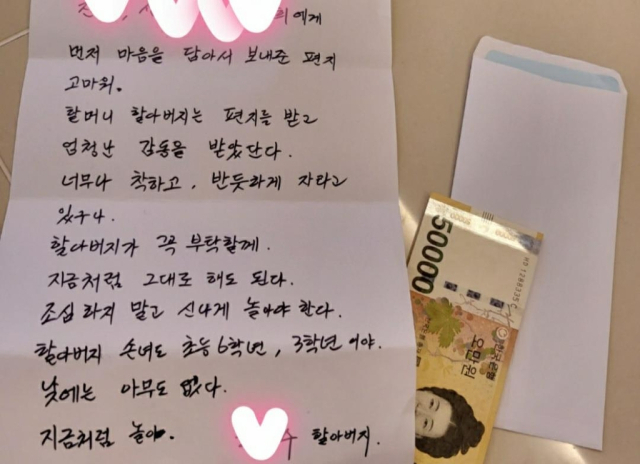 희에게
먼저 마음을 담아서 보내준 편지
고마워.
할머니 할아버지는 편지를 받고
엄청난 감동을 받았단다.
너무나 착하고, 반듯하게 자라고
있구나.
할아버지가 꼭 부탁할께.
지금처럼 그대로 해도 된다.
조심 하지 말고 신나게 놀아야 한다.
할아버지 손녀도 초등6학년, 3학년 이야.
낮에는 아무도 없다.
지금처럼 놀아.
수 할아버지.
50000
한국은행
오만원
50000